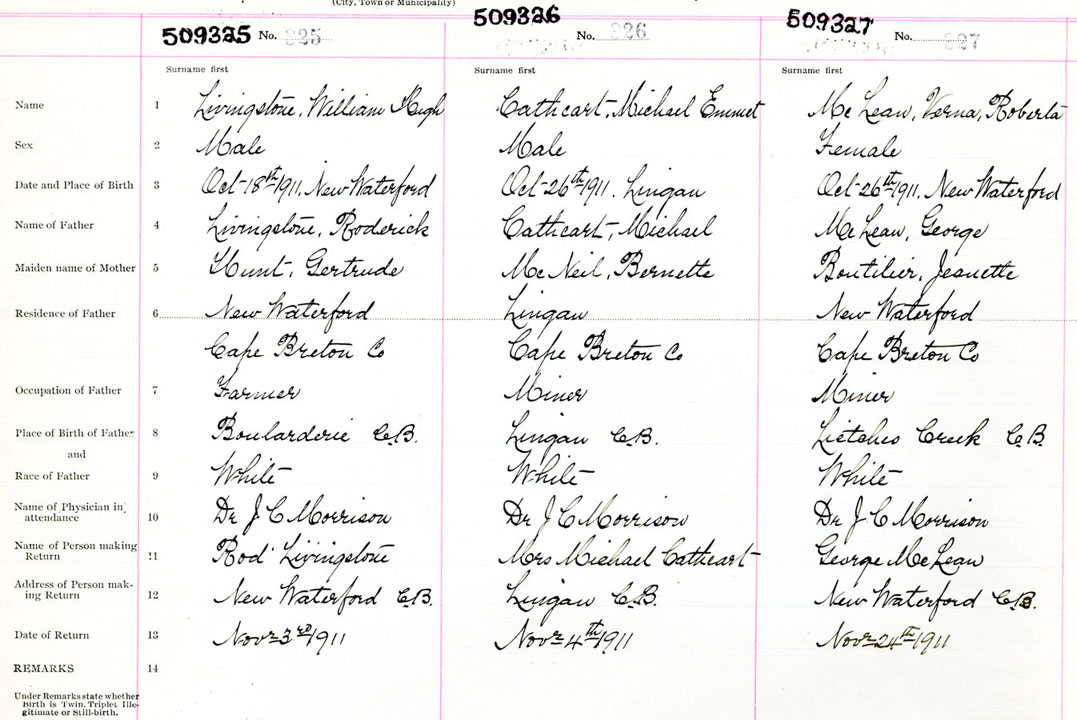 (City, Town or Municipality)
509325 No. 325 509326 No. 326 509327 No. 327
Surname first Surname first Surname first
Name 1 Livingstone, William Hugh Cathcart, Michael Emmet Mc Lean, Verna, Roberta
Sex 2 Male Male Female
Date and Place of Birth 3 Oct-18th 1911, New Waterford Oct-26th 1911. Lingan Oct-26th 1911. New Waterford
Name of Father 4 Livingstone, Roderick Cathcart, Michael Mc Lean, George
Maiden name of Mother 5 Hunt, Gertrude Mc Neil, Bernette Boutilier, Jeanette
Residence of Father 6 New Waterford Lingan New Waterford
Cape Breton Co Cape Breton Co Cape Breton Co
Occupation of Father 7 Farmer Miner Miner
Place of Birth of Father 8 Boularderie C.B. Lingan C.B. Lietches Creek C.B.
and
Race of Father 9 White White White
Name of Physician in
attendance 10 Dr J C Morrison Dr J C Morrison Dr J C Morrison
Name of Person making
Return 11 Rod Livingstone Mrs Michael Cathcart George Mc Lean
Address of Person mak-
ing Return 12 New Waterford C.B. Lingan C.B. New Waterford C.B.
Date of Return 13 Novr 3rd 1911 Novr 4th 1911 Novr 24th 1911
REMARKS 14
Under Remarks state whether
Birth is Twin, Triplet Ille-
gitimate or Still-birth.